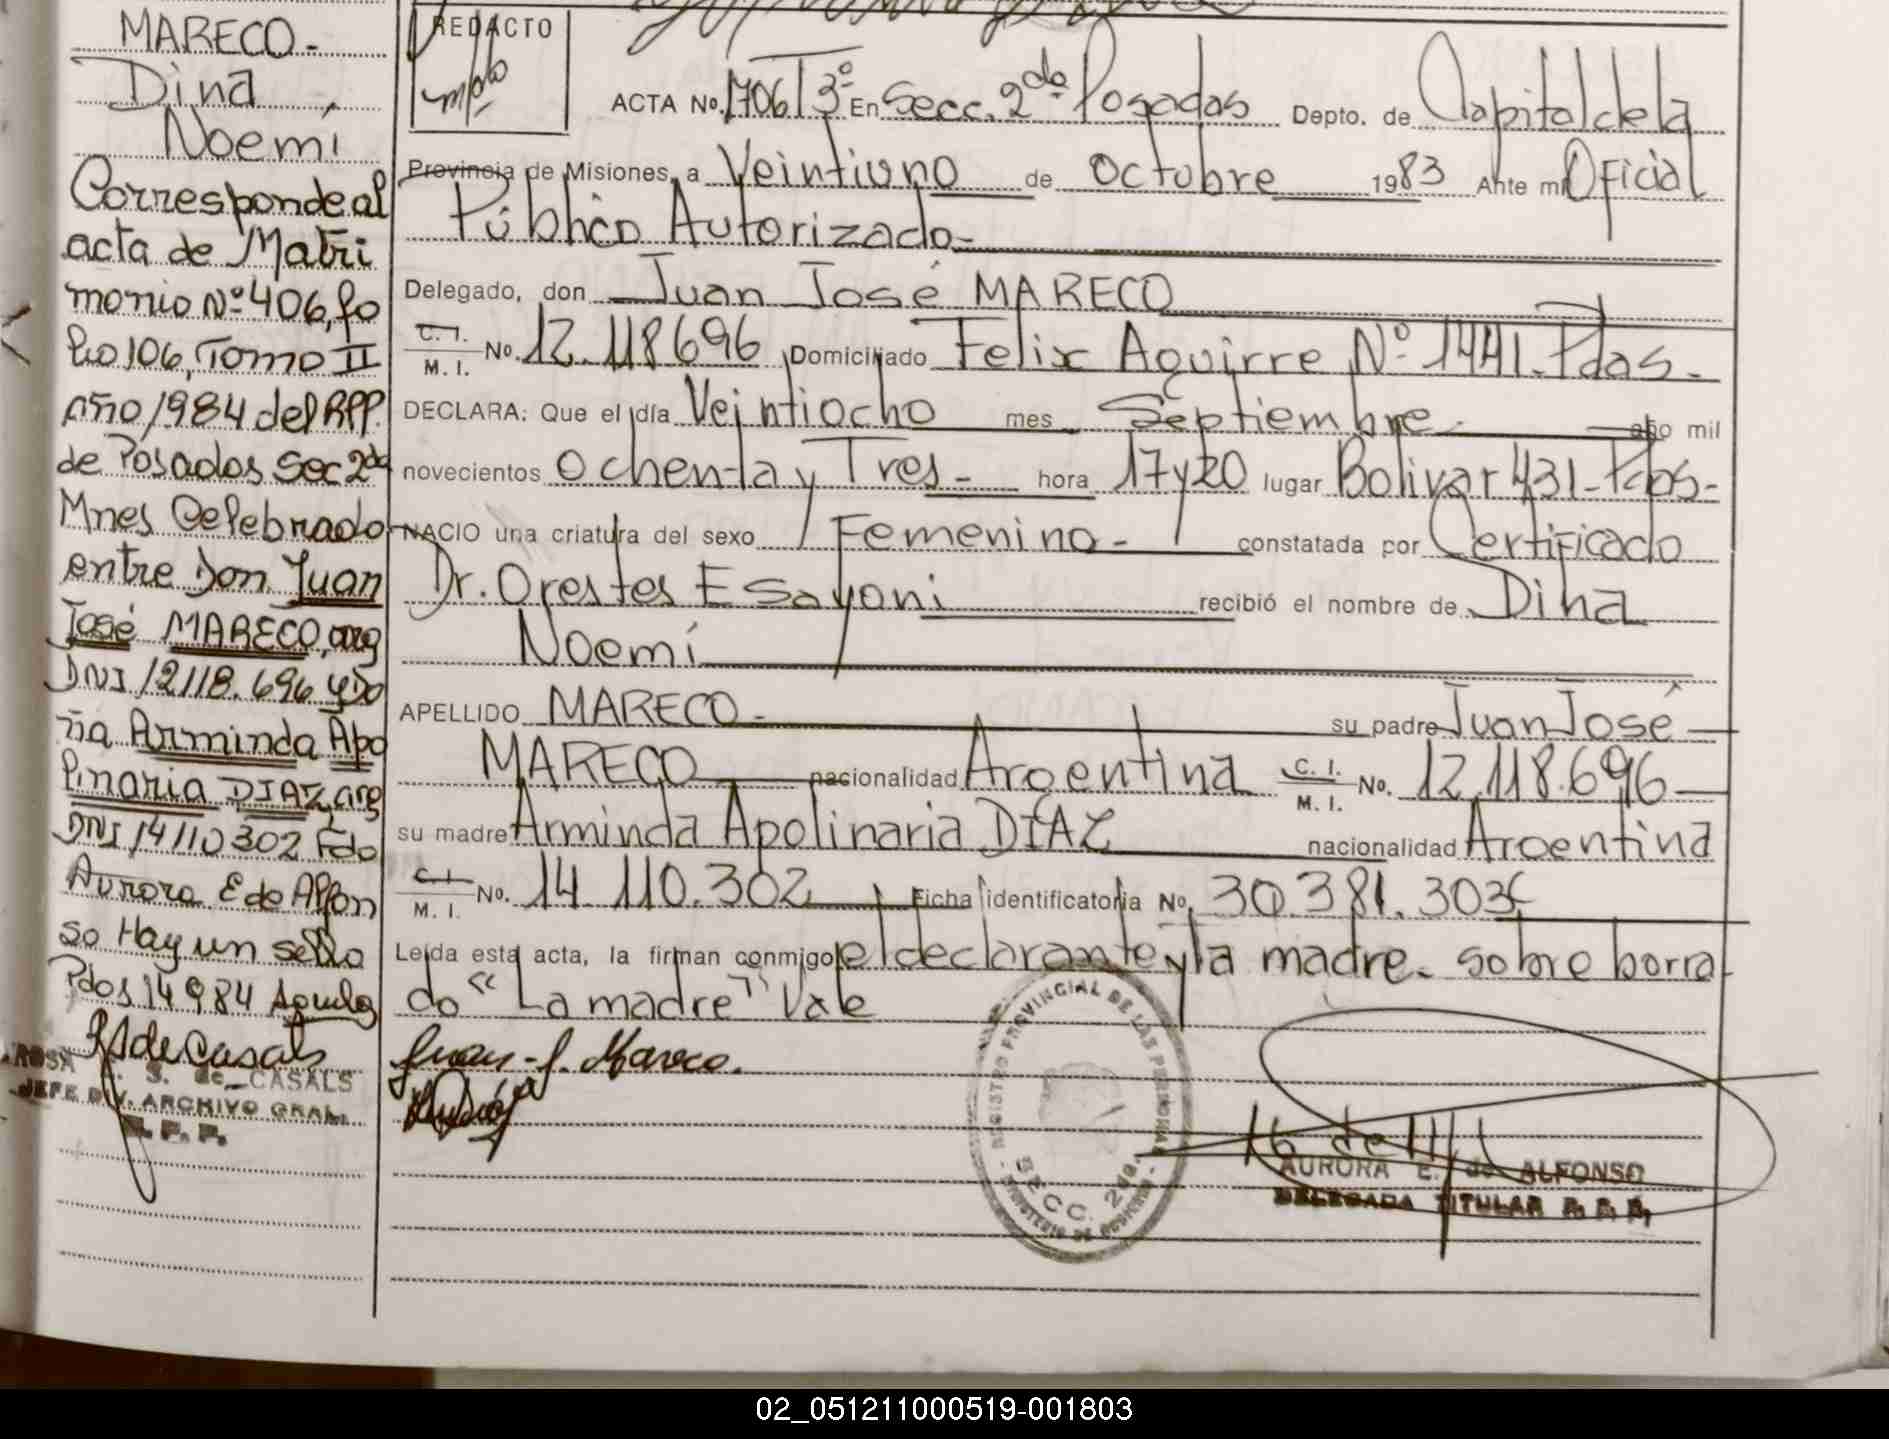 MARECO.-
Dina
Noemí
Corresponde al
acta de Matri
monio Nº 406, fo
lio 106, Tomo II
año 1984 del RPP.
de Posadas Sec 2da
Mnes Celebrado
entre Don Juan
José MARECO, arg
DNI 12118.696 y Do
ña Arminda Apo
linaria DIAZ, arg
DNI 14110302 Fdo
Aurora E de Alfon
so Hay un sello
Pdas 14 9 84
RS de Casals
ROSA S. de CASALS
JEFE DIV. ARCHIVO GRAL.
R. P. P.
REDACTO
ACTA No. 1706 T 3º En Secc. 2da Posadas Depto. de Capital de la
Provincia de Misiones, a Veintiuno de Octubre 1983 Ante mi Oficial
Público Autorizado-
Delegado, don Juan José MARECO
C. I. M. I. No. 12.118696 Domiciliado Felix Aguirre Nº 1441. Pdas.
DECLARA: Que el día Veintiocho mes Septiembre año mil
novecientos Ochenta y Tres- hora 17 y 20 lugar Bolivar 431- Pdas-
NACIO una criatura del sexo Femenino- constatada por Certificado
Dr. Orestes E Sayoni recibió el nombre de Dina
Noemí
APELLIDO MARECO- su padre Juan José
MARECO nacionalidad Argentina C. I. M. I. No. 12.118.696
su madre Arminda Apolinaria DÍAZ nacionalidad Argentina
C. I. M. I. No. 14.110.302 Ficha identificatoria No. 30.381.303
Leída esta acta, la firman conmigo el declarante y la madre. sobre borra-
do "La madre" Vale
Juan J. Mareco.
REGISTRO PROVINCIAL DE LAS PERSONAS
SECC. 2da.
MINISTERIO DE GOBIERNO
AURORA E. de ALFONSO
DELEGADA TITULAR R. P. P.
02_051211000519-001803